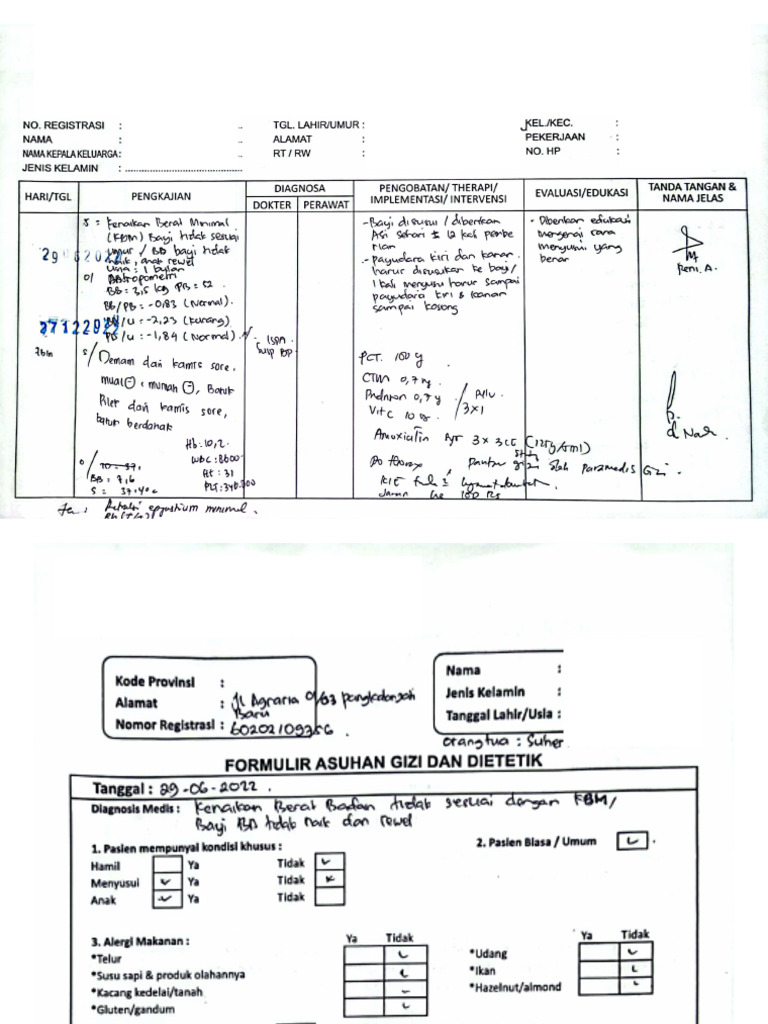 NO. REGISTRASI :
NAMA :
NAMA KEPALA KELUARGA :
JENIS KELAMIN :
TGL. LAHIR/UMUR :
ALAMAT :
RT / RW :
KEL./KEC. :
PEKERJAAN :
NO. HP :
HARI/TGL
PENGKAJIAN
DIAGNOSA
DOKTER
PERAWAT
PENGOBATAN/ THERAPI/
IMPLEMENTASI/ INTERVENSI
EVALUASI/EDUKASI
TANDA TANGAN &
NAMA JELAS
S = Kenaikan Berat Minimal
(KBM) Bayi tidak sesuai
umur / BB bayi tidak
naik, anak rewel
Usia : 1 bulan
O/
BB = 3,5 kg PB = 52
BB/PB = -0,83 (Normal).
BB/U = -2,23 (Kurang)
PB/U = -1,84 (Normal)
- Bayi disusui / diberikan
Asi sehari ± 12 kali pembe
rian
- payudara kiri dan kanan
harus disusukan ke bayi/
1 kali menyusu harus sampai
payudara kiri & kanan
sampai kosong
- Diberikan edukasi
mengenai cara
menyusui yang
benar
Reni. A.
27122022
7bln
S/ Demam dari kamis sore,
mual (-), muntah (-), Batuk
Pilek dari kamis sore,
batuk berdahak
Hb : 10,2
WBC : 8600
Ht : 31
O/
BB = 7,6
ISPA
PCT. 100
CTM 0,7
Vit C 10
3x1
Amoxicilin syr 3 x 3 cc
Paramedis Gizi.
epigastrium minimal.
Kode Provinsi :
Alamat : Jl Agraria
Baru
Nomor Registrasi : 60202109356.
Nama :
Jenis Kelamin :
Tanggal Lahir/Usia :
orangtua : Suher
FORMULIR ASUHAN GIZI DAN DIETETIK
Tanggal : 29-06-2022.
Diagnosis Medis : Kenaikan Berat Badan tidak sesuai dengan KBM/
Bayi BB tidak naik dan rewel
1. Pasien mempunyai kondisi khusus :
Hamil Ya Tidak
Menyusui Ya Tidak
Anak Ya Tidak
2. Pasien Biasa / Umum
3. Alergi Makanan : Ya Tidak
*Telur
*Susu sapi & produk olahannya
*Kacang kedelai/tanah
*Gluten/gandum
Ya Tidak
*Udang
*Ikan
*Hazelnut/almond